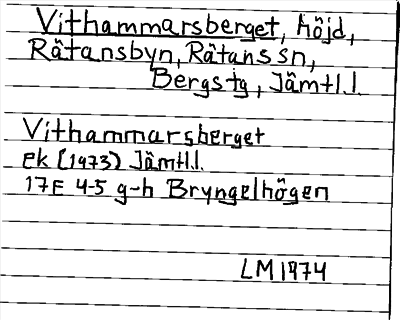 Vithammarsberget, höjd,
Rätansbyn, Rätans sn,
Bergs tg, Jämtl.l.
Vithammarsberget
Ek (1973) Jämtl.l.
17F 4-5 g-h Bryngelhögen
LM 1974